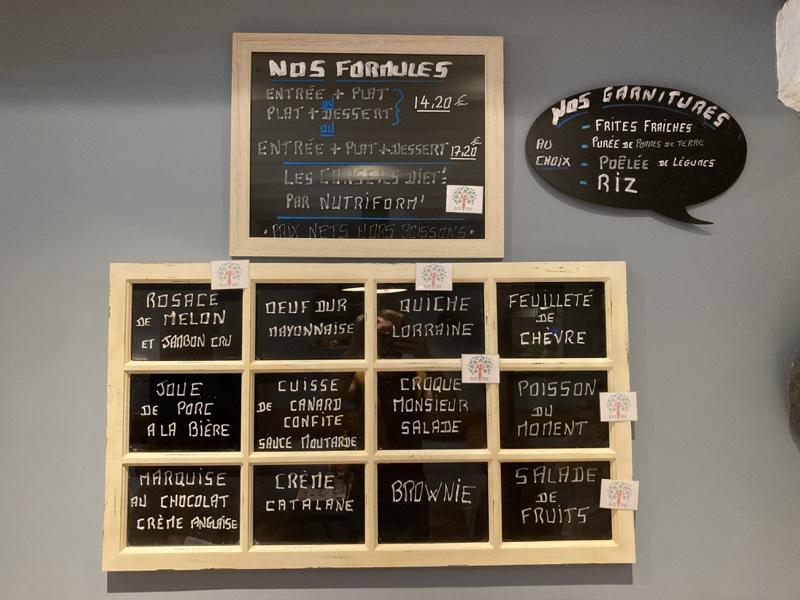 NOS FORMULES
ENTRÉE + PLAT
ou
PLAT + DESSERT
14.20 €
ou
ENTRÉE + PLAT + DESSERT 17.20 €
LES CONSEILS DIET'
PAR NUTRIFORM'
• PRIX NETS HORS BOISSONS •
NOS GARNITURES
AU CHOIX
- FRITES FRAICHES
- PURÉE DE POMMES DE TERRE
- POÊLÉE DE LÉGUMES
- RIZ
ROSACE
DE MELON
ET JAMBON CRU
OEUF DUR
MAYONNAISE
QUICHE
LORRAINE
FEUILLETÉ
DE
CHÈVRE
JOUE
DE PORC
A LA BIÈRE
CUISSE
DE CANARD
CONFITE
SAUCE MOUTARDE
CROQUE
MONSIEUR
SALADE
POISSON
DU
MOMENT
MARQUISE
AU CHOCOLAT
CRÈME ANGLAISE
CRÈME
CATALANE
BROWNIE
SALADE
DE
FRUITS